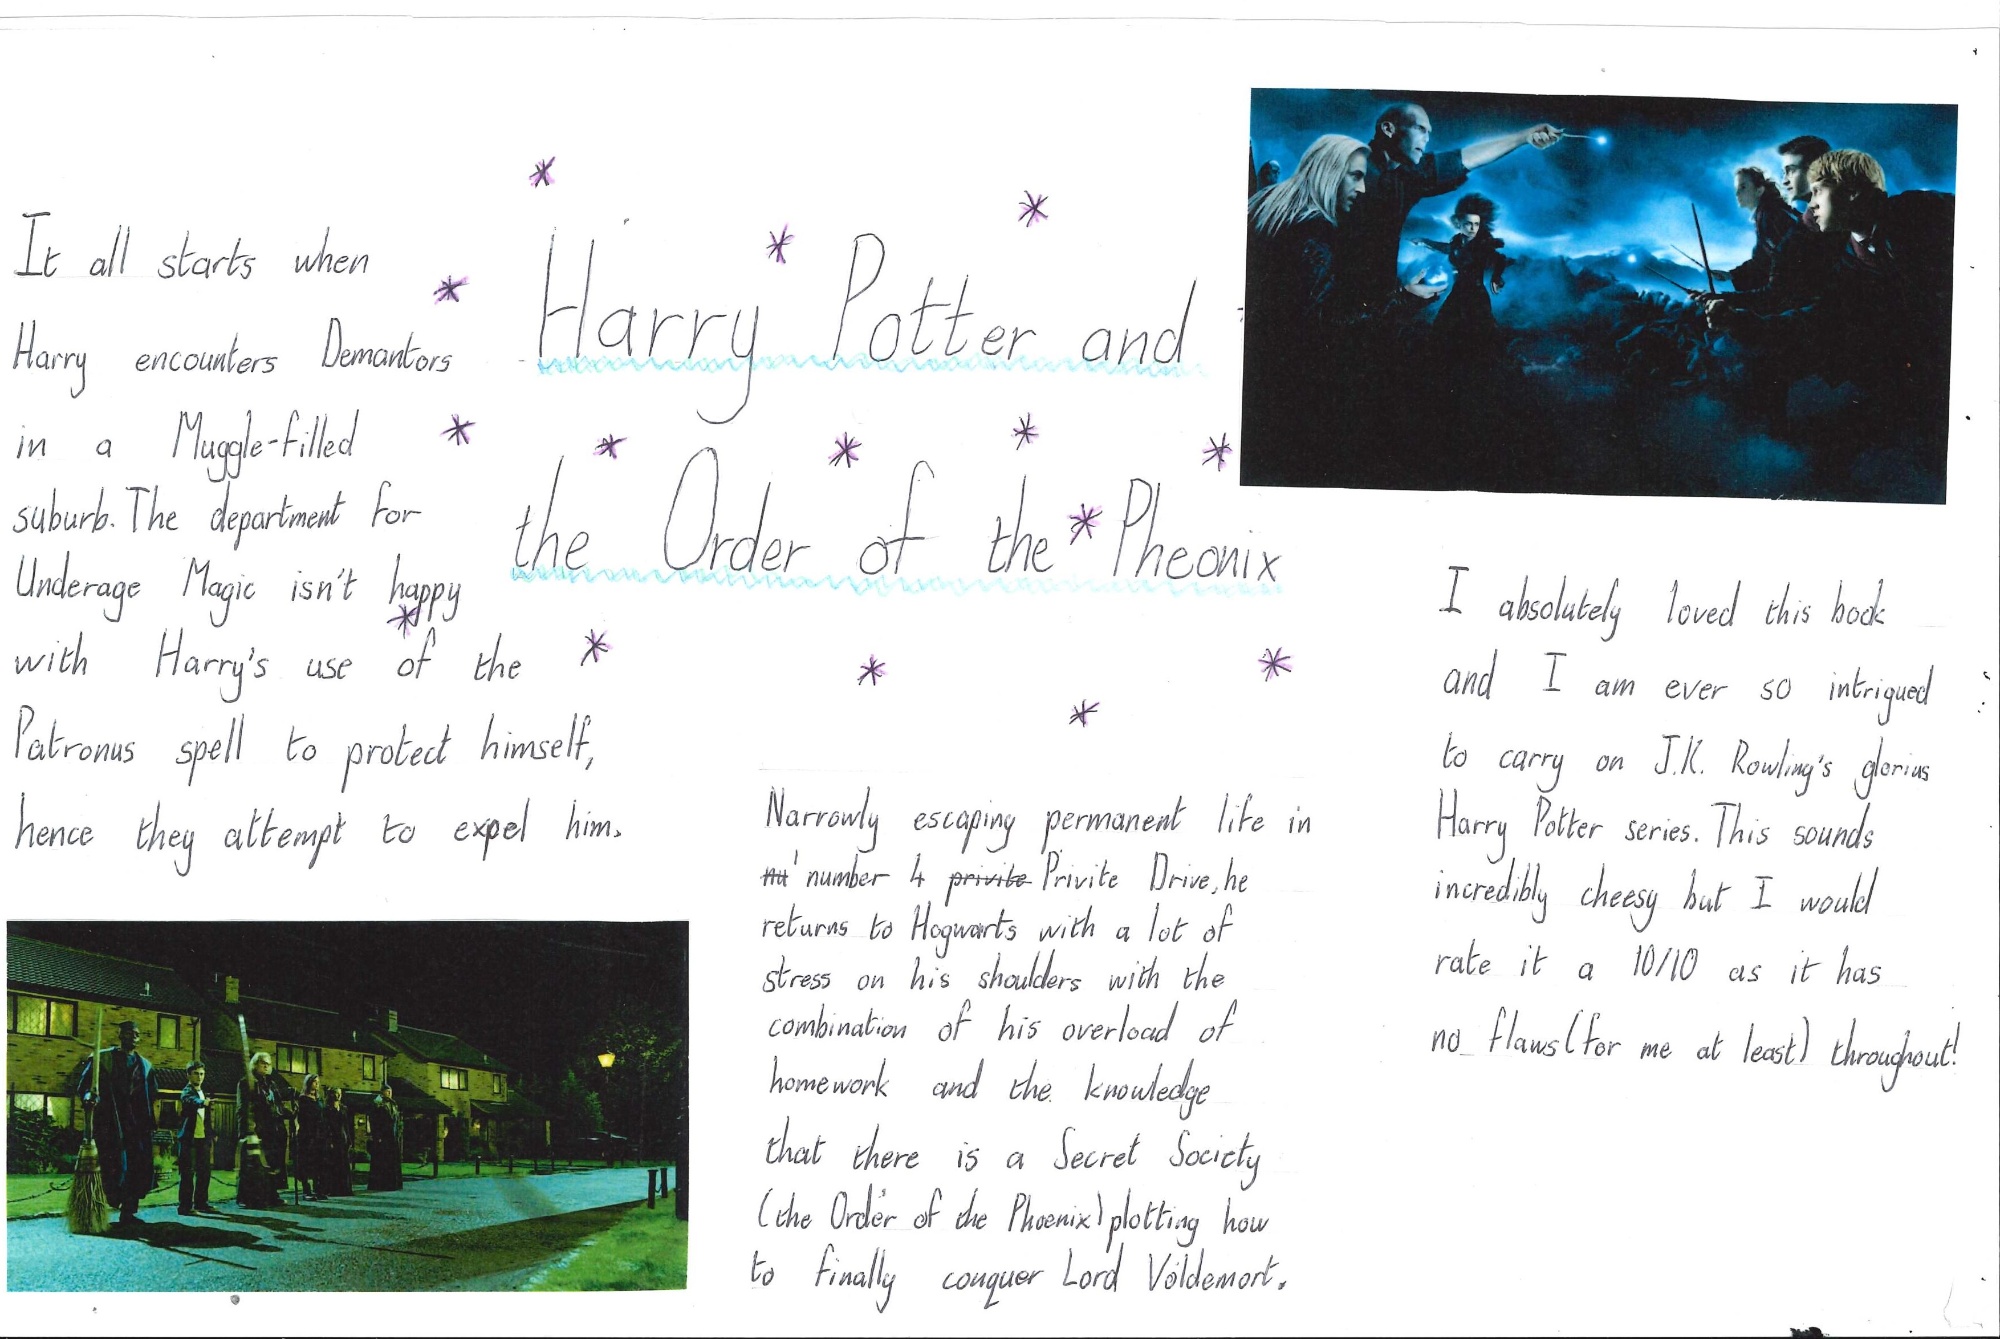 Harry Potter and
the Order of the Pheonix
It all starts when
Harry encounters Demantors
in a Muggle-filled
suburb. The department for
Underage Magic isn't happy
with Harry's use of the
Patronus spell to protect himself,
hence they attempt to expel him.
Narrowly escaping permanent life in
nu number 4 privite Privite Drive, he
returns to Hogwarts with a lot of
stress on his shoulders with the
combination of his overload of
homework and the knowledge
that there is a Secret Society
(the Order of the Phoenix) plotting how
to finally conquer Lord Voldemort.
I absolutely loved this book
and I am ever so intrigued
to carry on J.K. Rowling's glorius
Harry Potter series. This sounds
incredibly cheesy but I would
rate it a 10/10 as it has
no flaws (for me at least) throughout!